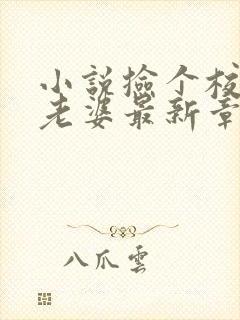 小説撿个校
老婆最新章
八爪雲